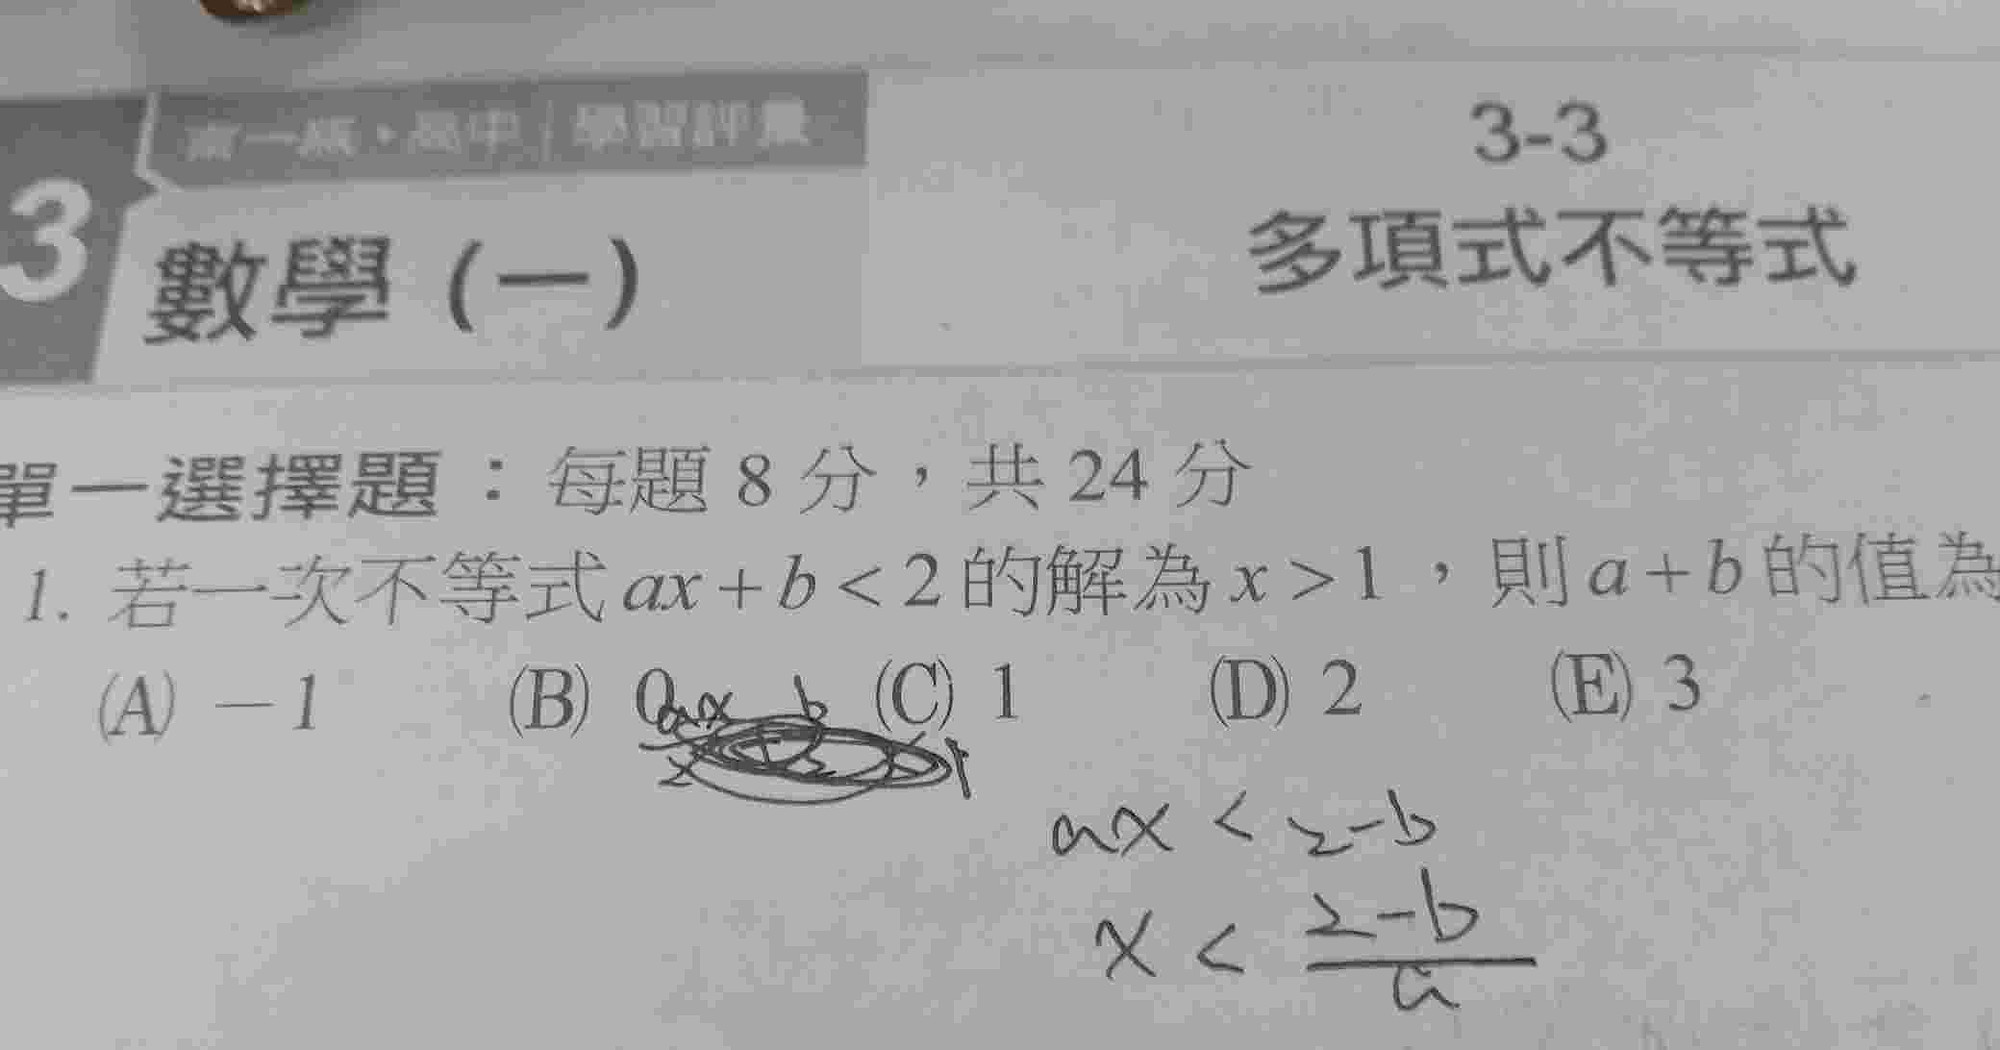 3
南一版・高中 | 學習評量
數學 (一)
3-3
多項式不等式
單一選擇題：每題 8 分，共 24 分
1. 若一次不等式 ax + b < 2 的解為 x > 1，則 a + b 的值為
(A) －1 (B) 0 (C) 1 (D) 2 (E) 3
ax b
ax < 2-b
x < \frac{2-b}{a}